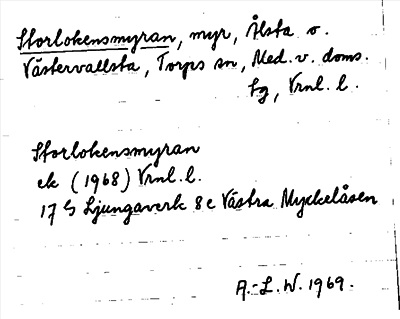 Storlokensmyran, myr, Ålsta o.
Västervallsta, Torps sn, Med. v. doms.
tg, Vrnl. l.
Storlokensmyran
ek (1968) Vrnl. l.
17 G Ljungaverk 8 e Västra Myckelåsen
A.-L. W. 1969.